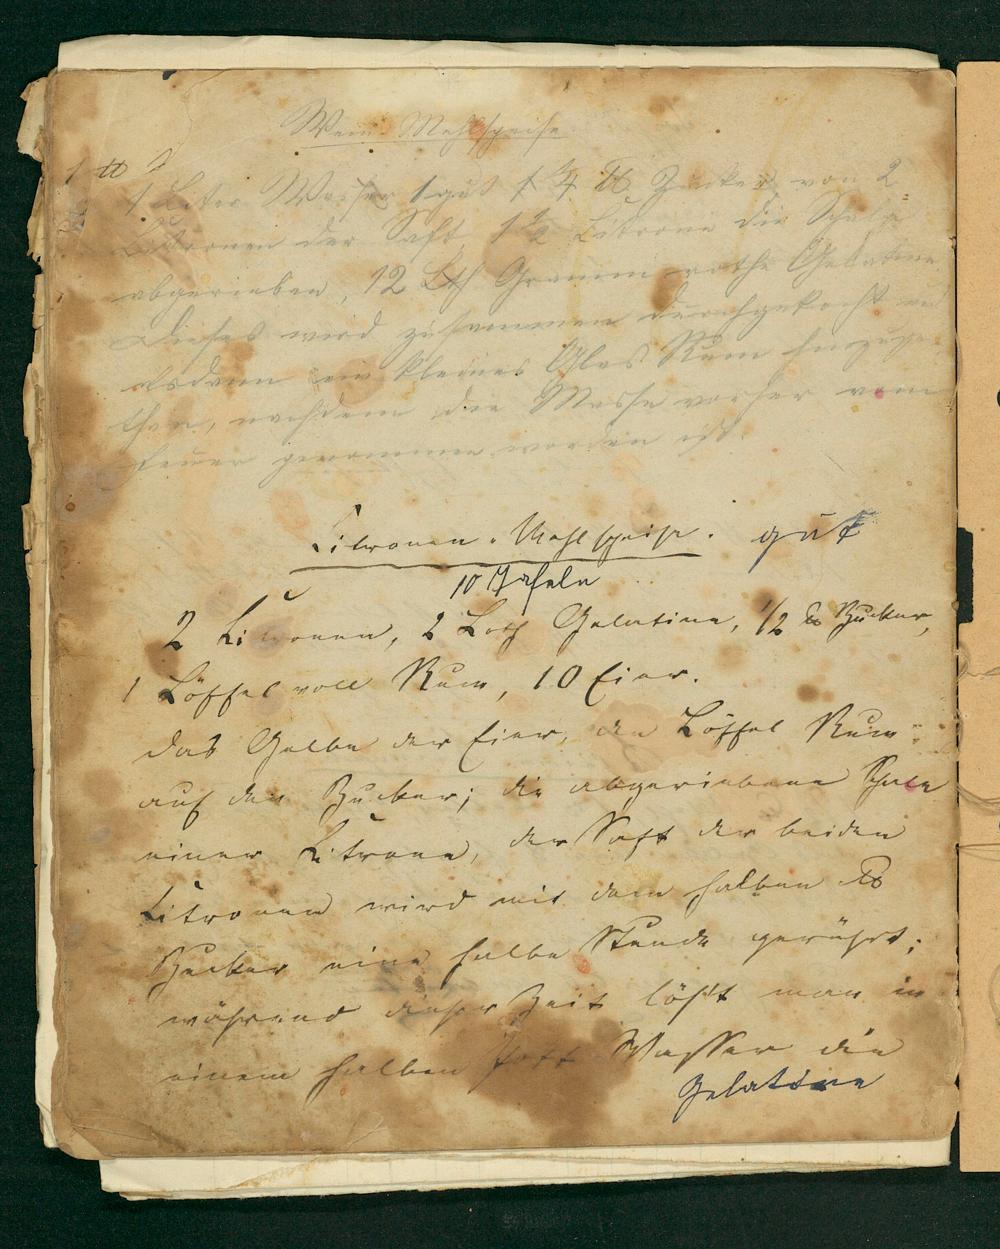 Wein-Mehlspeise
1 Liter Wasser 1 gut 1 1/4 ℔ Zucker, von 2
Citronen der Saft, 1 1/2 Citrone die Schale
abgerieben, 12 Gramm rothe Gelatine
Dieses wird zusammen durchgekocht und
alsdann ein kleines Glas Rum hinzuge-
than, nachdem die Masse vorher vom
Feuer genommen worden ist.
Citronen-Mehlspeise. gut
10 Tafeln
2 Citronen, 2 Loth Gelatine, 1/2 ℔ Zucker,
1 Löffel voll Rum, 10 Eier.
Das Gelbe der Eier, den Löffel Rum
auf den Zucker; die abgeriebene Schale
einer Citrone, der Saft der beiden
Citronen wird mit dem halben ℔
Zucker eine halbe Stunde gerührt;
während dieser Zeit löst man in
einem halben Wasser die
Gelatine